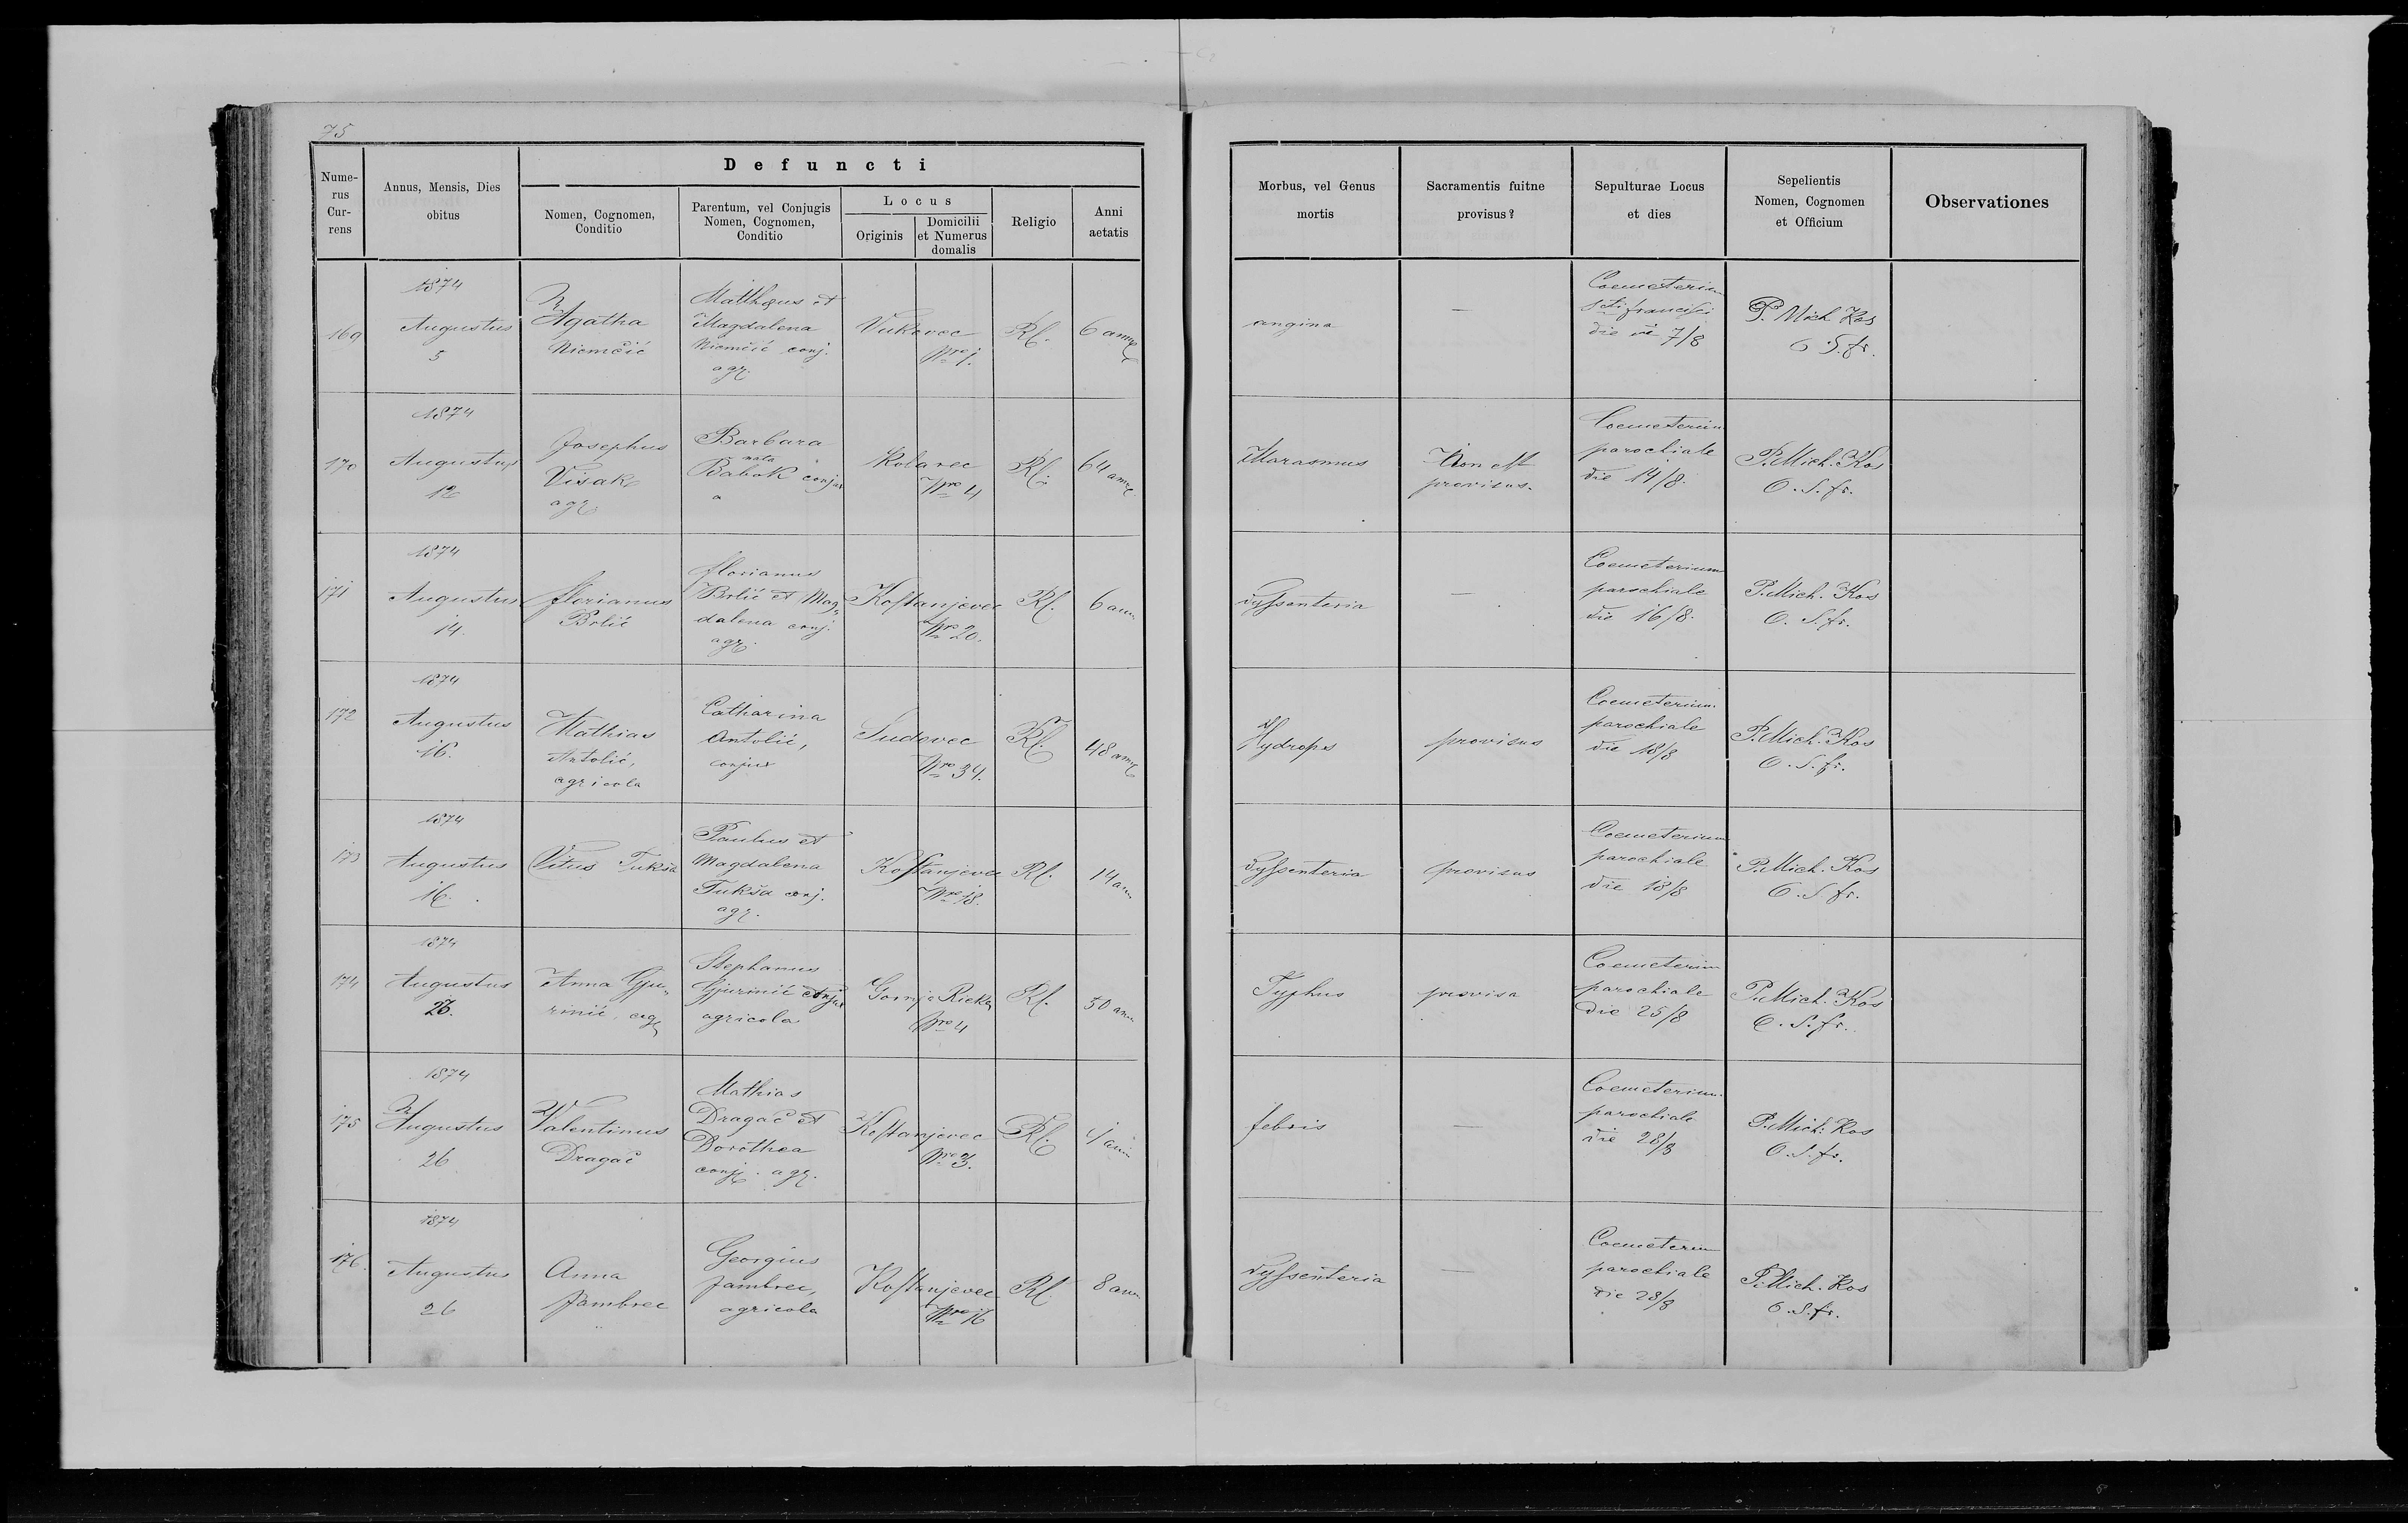 75
Defuncti
Nume-
rus
Cur-
rens
Annus, Mensis, Dies
obitus
Nomen, Cognomen,
Conditio
Parentum, vel Conjugis
Nomen, Cognomen,
Conditio
Locus
Originis
Domicilii
et Numerus
domalis
Religio
Anni
aetatis
Morbus, vel Genus
mortis
Sacramentis fuitne
provisus?
Sepulturae Locus
et dies
Sepelientis
Nomen, Cognomen
et Officium
Observationes
169
1874
Augustus
5
Agatha
Niemčić
Matthæus et
Magdalena
Niemčić conj.
agr.
Vukovec
Nro 1.
Rk.
6
angina
—
Coemeterium
Sti francisci
die 7/8
P. Mich Kos
O. S. fr.
170
1874
Augustus
12
Josephus
Visak
agr.
Barbara
nata
Babok conjux
a
Kolarec
Nro 4
Rk.
64
Marasmus
Non est
provisus.
Coemeterium
parochiale
die 14/8.
P. Mich. Kos
O. S. fr.
171
1874
Augustus
14.
Florianus
Brlić
Florianus
Brlić et Mag„
dalena conj.
agr.
Kostanjevec
Nro 20.
Rk.
6 ann
dyssenteria
—
Coemeterium
parochiale
die 16/8.
P. Mich. Kos
O. S. fr.
172
1874
Augustus
16.
Mathias
Antolić,
agricola
Catharina
Antolić,
conjux
Sudovec
Nro 34.
Rk.
48
Hydrops
provisus
Coemeterium
parochiale
die 18/8
P. Mich. Kos
O. S. fr.
173
1874
Augustus
16.
Vitus Tukša
Paulus et
Magdalena
Tukša conj.
agr.
Kostanjevec
Nro 18.
Rk.
14 ann
dyssenteria
provisus
Coemeterium
parochiale
die 18/8
P. Mich. Kos
O. S. fr.
174
1874
Augustus
Anna Gju„
rinić, agr
Stephanus
Gjurinić conjux
agricola
Gornja Rieka
Nro 4
Rk.
50 ann
Typhus
provisa
Coemeterium
parochiale
die 25/8
P. Mich. Kos
O. S. fr.
175
1874
Augustus
26
Valentinus
Dragač
Mathias
Dragač et
Dorothea
conj. agr.
Kostanjevec
Nro 3.
Rk.
febris
—
Coemeterium
parochiale
die 28/8
P. Mich. Kos
O. S. fr.
176.
1874
Augustus
26
Anna
Jambrec
Georgius
Jambrec,
agricola
Kostanjevec
Nro 16
Rk.
8 ann
dyssenteria
—
Coemeterium
parochiale
die 28/8
P. Mich. Kos
O. S. fr.